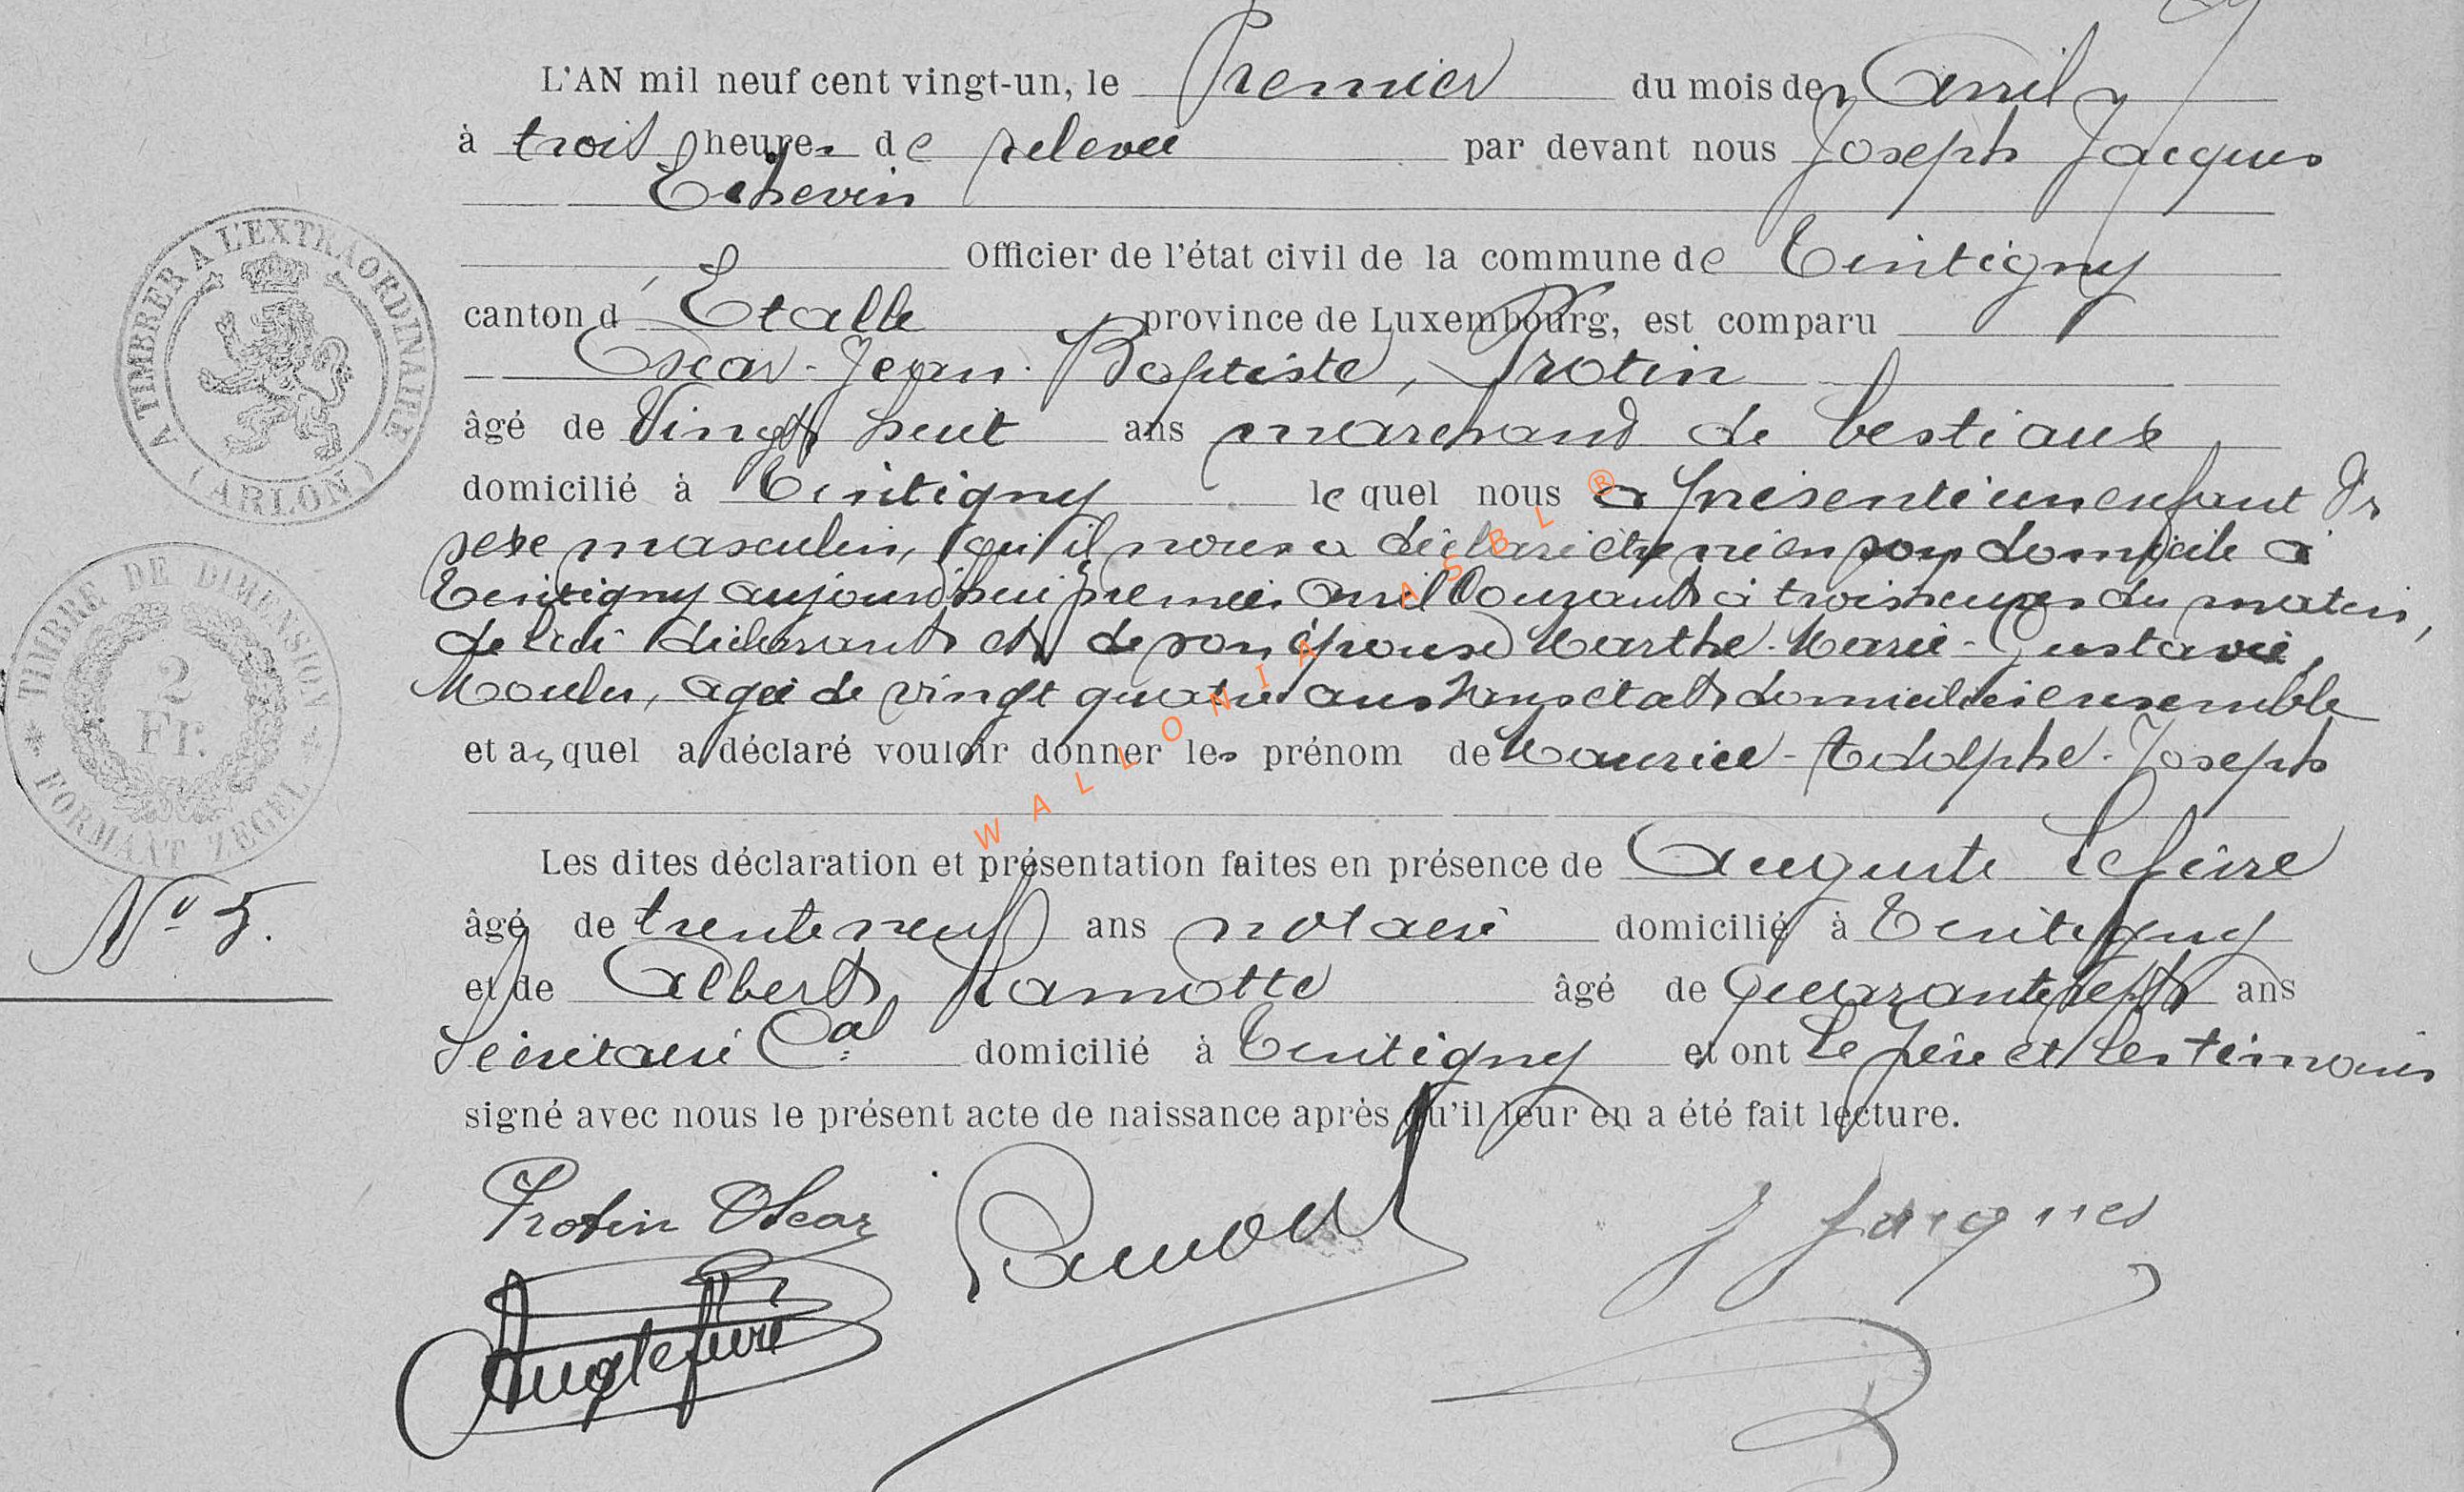 L'AN mil neuf cent vingt-un, le Premier du mois de Avril
à trois heures de relevée par devant nous Joseph Jacques
Echevin
Officier de l'état civil de la commune de Tintigny
canton d'Etalle province de Luxembourg, est comparu
Oscar-Jean-Baptiste, Protin
âgé de Vingt huit ans marchand de bestiaux
domicilié à Tintigny lequel nous a présenté un enfant du
sexe masculin, qu'il nous a déclaré être né en son domicile à
Tintigny aujourd'hui premier avril courant à trois heures du matin,
de lui déclarant et de son épouse Marthe-Marie-Gustavie,
agée de vingt quatre ans sans état domiciliés ensemble
et auquel a déclaré vouloir donner les prénom de Maurice-Adolphe-Joseph
Les dites déclaration et présentation faites en présence de Auguste Lefèvre
âgé de trente neuf ans notaire domicilié à Tintigny
et de Albert Lamotte âgé de quarante sept ans
Secrétaire Cal domicilié à Tintigny et ont le père et les témoins
signé avec nous le présent acte de naissance après qu'il leur en a été fait lecture.
Protin Oscar
J Jacques
Aug Lefèvre
A TIMBRER A L'EXTRAORDINAIRE
(ARLON)
TIMBRE DE DIMENSION
2
Fr.
FORMAAT ZEGEL
No 5.
WALLONIA ASBL ®